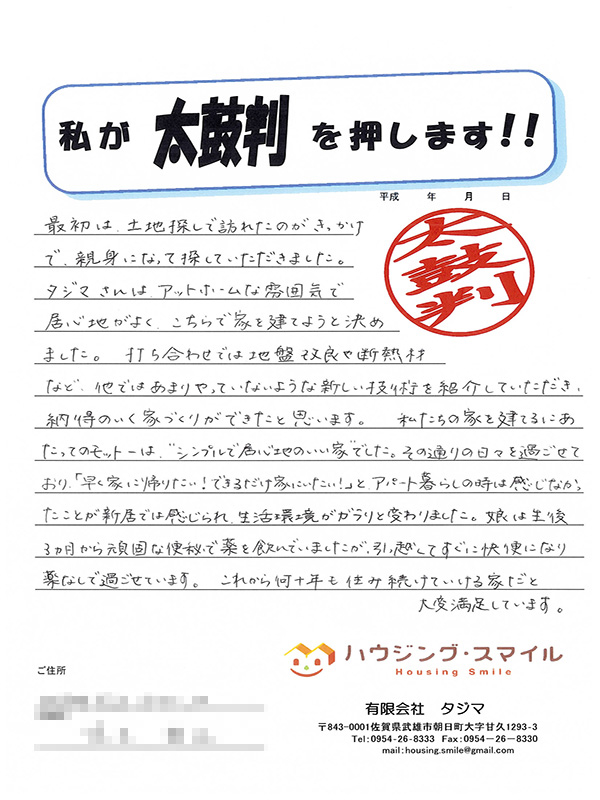 私が 太鼓判 を押します!!
平成 年 月 日
太鼓判
最初は、土地探しで訪れたのがきっかけ
で、親身になって探していただきました。
タジマさんは、アットホームな雰囲気で
居心地がよく、こちらで家を建てようと決め
ました。 打ち合わせでは地盤改良や断熱材
など、他ではあまりやっていないような新しい技術を紹介していただき、
納得のいく家づくりができたと思います。 私たちの家を建てるにあ
たってのモットーは、"シンプルで居心地のいい家"でした。その通りの日々を過ごせて
おり、「早く家に帰りたい!できるだけ家にいたい!」と、アパート暮らしの時は感じなかっ
たことが新居では感じられ、生活環境がガラリと変わりました。娘は生後
3ヵ月から頑固な便秘で薬を飲んでいましたが、引っ越してすぐに快便になり
薬なしで過ごせています。 これから何十年も住み続けていける家だと
大変満足しています。
ハウジング・スマイル
Housing Smile
ご住所
有限会社 タジマ
〒843-0001佐賀県武雄市朝日町大字甘久1293-3
Tel:0954-26-8333 Fax:0954-26-8330
mail:housing.smile@gmail.com